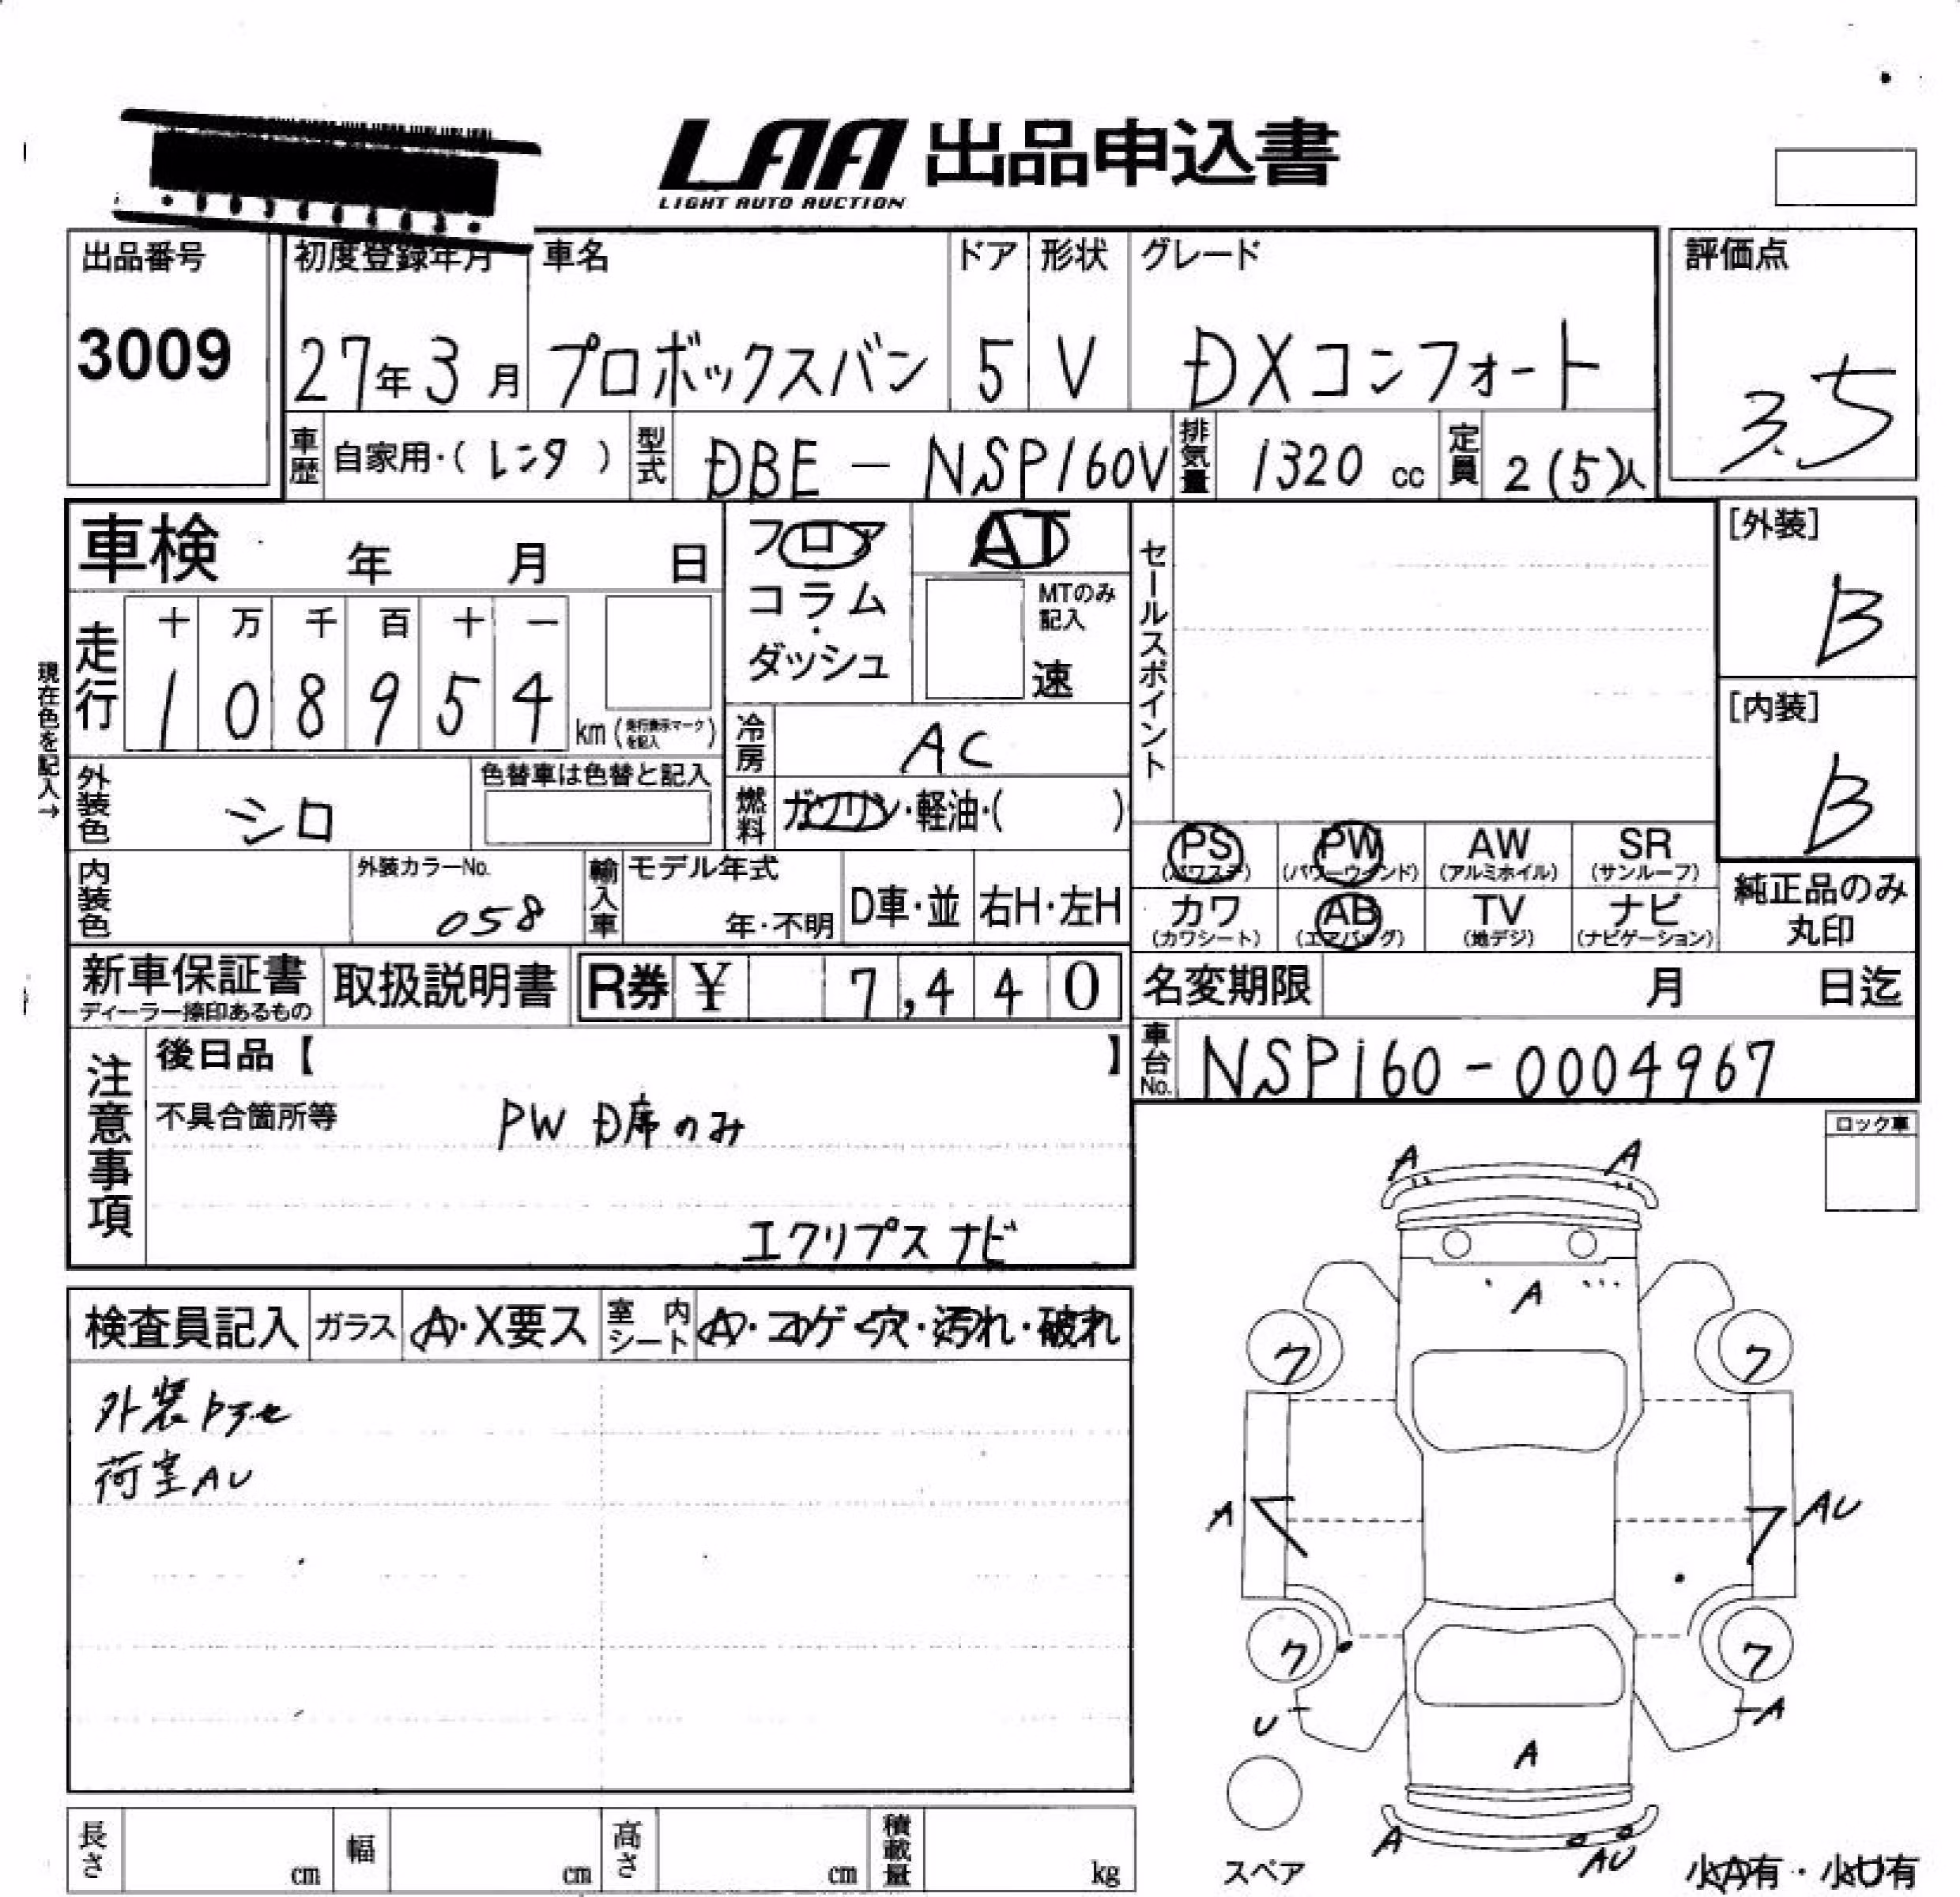 LAA 出品申込書
LIGHT AUTO AUCTION
出品番号
3009
初度登録年月
27年3月
車名
プロボックスバン
ドア
5
形状
V
グレード
DXコンフォート
評価点
3.5
車歴 自家用・(レンタ)
型式 DBE-NSP160V
排気量 1320 cc
定員 2(5)人
車検 年 月 日
フロア
コラム
・
ダッシュ
AT
MTのみ
記入
速
セールスポイント
[外装]
B
[内装]
B
現在色を記入→
走行
十 万 千 百 十 一
1 0 8 9 5 4
km(走行表示マークを記入)
冷房 AC
燃料 ガソリン・軽油・( )
外装色 シロ
色替車は色替と記入
内装色
外装カラーNo.
058
輸入車
モデル年式
年・不明
D車・並
右H・左H
PS (パワステ)
PW (パワーウインド)
AW (アルミホイル)
SR (サンルーフ)
カワ (カワシート)
AB (エアバッグ)
TV (地デジ)
ナビ (ナビゲーション)
純正品のみ
丸印
新車保証書
ディーラー捺印あるもの
取扱説明書
R券 ¥ 7,440
名変期限 月 日迄
車台No. NSP160-0004967
注意事項
後日品【 】
不具合箇所等
PW D席のみ
エクリプス ナビ
ロック車
検査員記入
ガラス A・X要ス
室内シート A・コゲ・穴・汚れ・破れ
荷室AU
A A
A
ク ク
A AU
ク ク
U A
A
A AU
スペア
小A有・小U有
長さ cm
幅 cm
高さ cm
積載量 kg